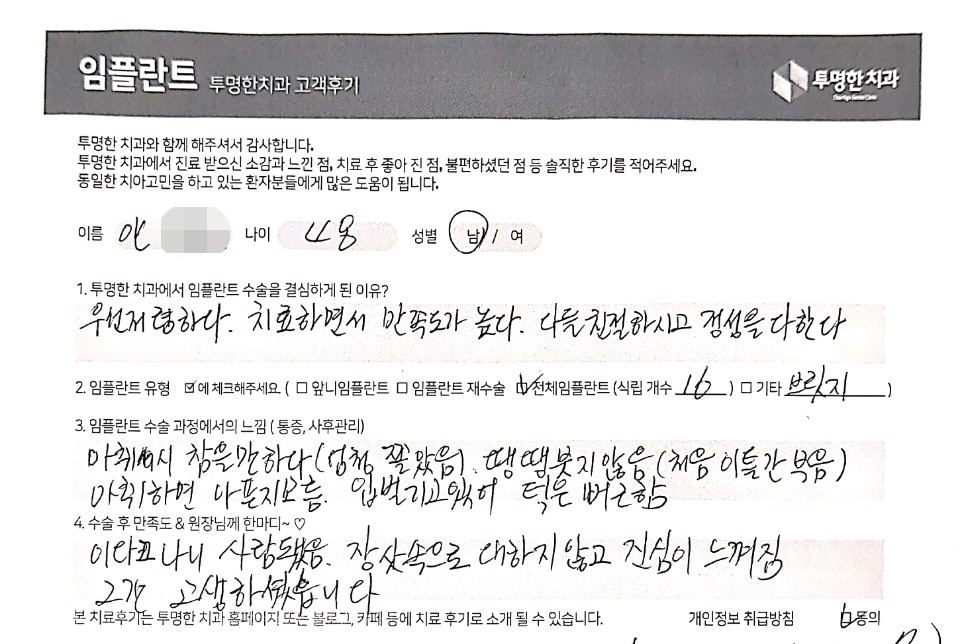 임플란트 투명한치과 고객후기
투명한 치과
투명한 치과와 함께 해주셔서 감사합니다.
투명한 치과에서 진료 받으신 소감과 느낀 점, 치료 후 좋아 진 점, 불편하셨던 점 등 솔직한 후기를 적어주세요.
동일한 치아고민을 하고 있는 환자분들에게 많은 도움이 됩니다.
이름 안 나이 성별 남 / 여
1. 투명한 치과에서 임플란트 수술을 결심하게 된 이유?
우선저렴하다. 치료하면서 만족도가 높다. 다들친절하시고 정성을 다한다
2. 임플란트 유형 ☑에 체크해주세요. ( □ 앞니임플란트 □ 임플란트 재수술 ☑전체임플란트 (식립 개수 16 ) □ 기타 브릿지 )
3. 임플란트 수술 과정에서의 느낌 ( 통증, 사후관리)
마취시 참을만하다(엄청 쫄았음). 땡땡붓지않음(처음 이틀간 부음)
마취하면 아픈지모름. 입벌리고있어 턱은 뻐근함
4. 수술 후 만족도 & 원장님께 한마디~ ♡
이다하고나니 사람됐음. 장삿속으로 대하지 않고 진심이 느껴짐
그간 고생하셨습니다
본 치료후기는 투명한 치과 홈페이지 또는 블로그, 카페 등에 치료 후기로 소개 될 수 있습니다. 개인정보 취급방침 ☑동의